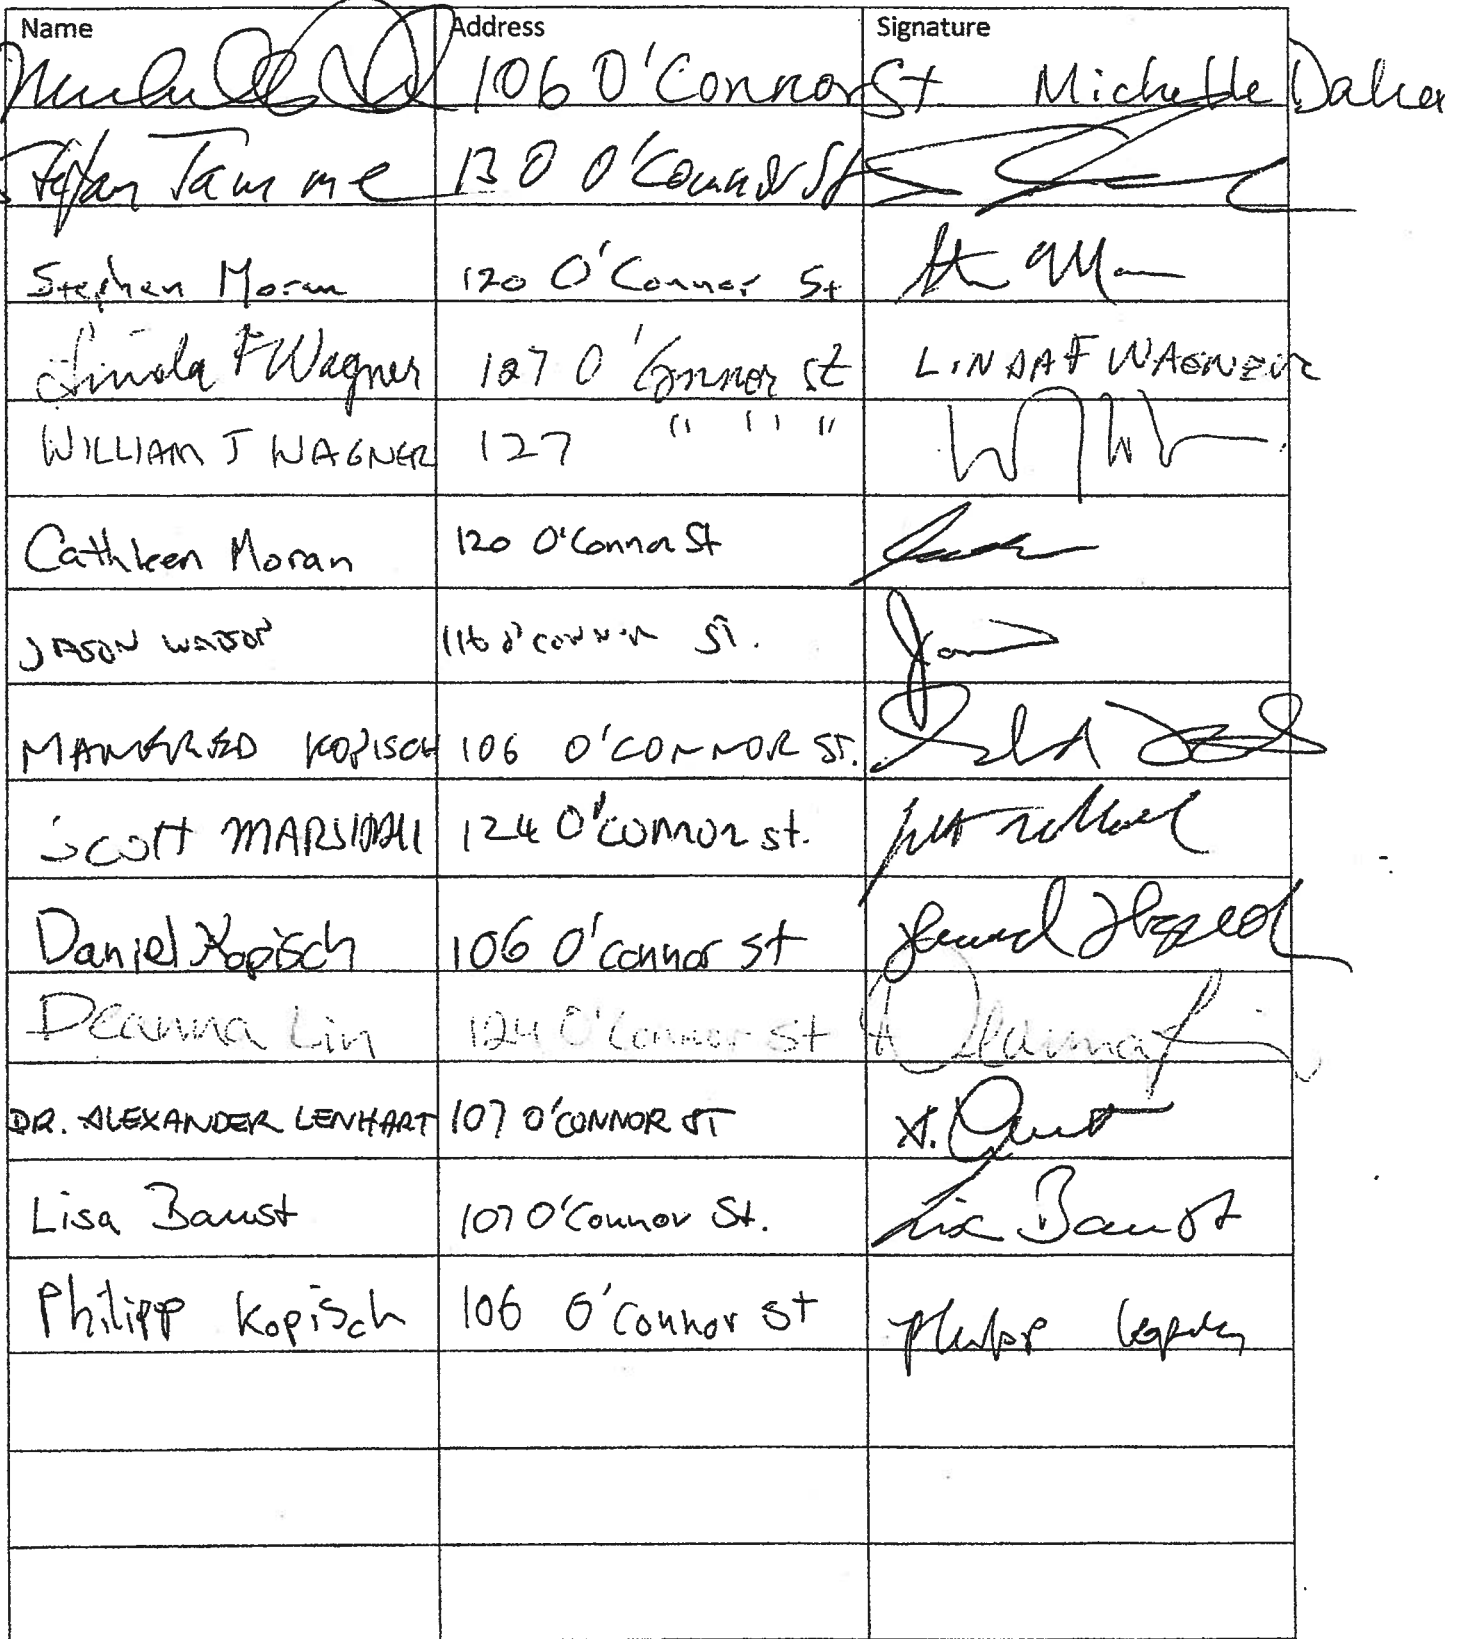 Name Address Signature
106 O'Connor St Michelle Daher
Stefan Tamme 130 O'Connor St
Stephen Moran 120 O'Connor St
Linda F Wagner 127 O'Connor St LINDA F WAGNER
WILLIAM J WAGNER 127 " " "
Cathleen Moran 120 O'Connor St
JASON WATSON 116 O'CONNOR ST.
MANFRED KOPISCH 106 O'CONNOR ST.
SCOTT MARSHALL 124 O'CONNOR St.
Daniel Kopisch 106 O'Connor St
Deanna Lin 124 O'Connor St Deanna Lin
DR. ALEXANDER LENHART 107 O'CONNOR ST
Lisa Baust 107 O'Connor St. Lisa Baust
Philipp Kopisch 106 O'Connor St Philipp Kopisch